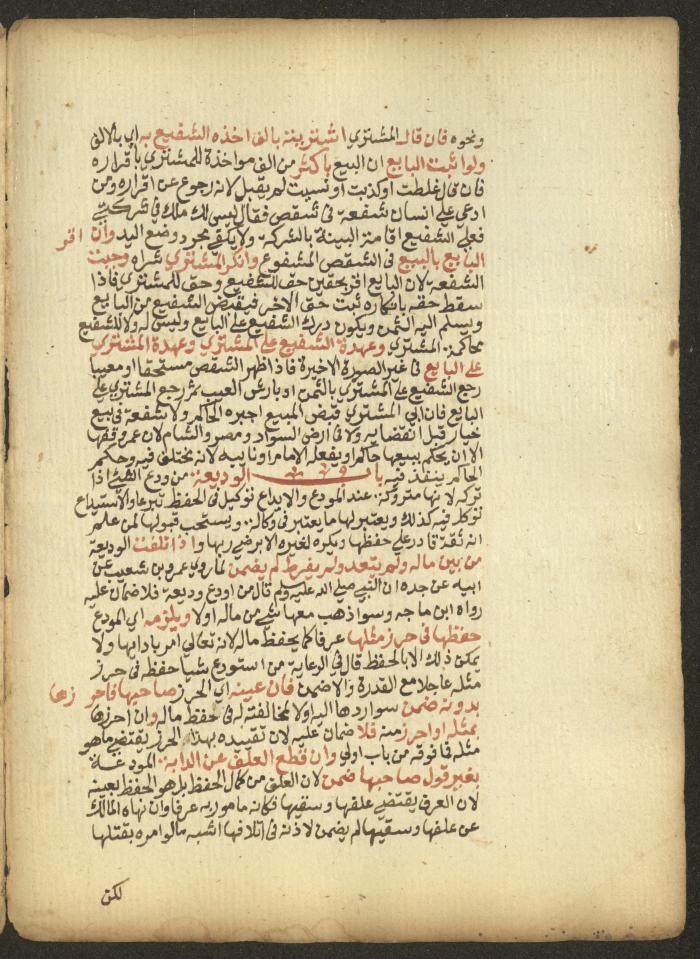 ونحوه فان قال المشتري اشتريته بالف اخذه الشفيع به اي بالالف
ولو اثبت البايع ان البيع باكثر من الف مواخذة للمشتري باقراره
فان قال غلطت او كذبت او نسيت لم يقبل لانه رجوع عن اقراره ومن
ادعي على انسان شفعة في شقص فقال ليس لك ملك في شركتي
فعلي الشفيع اقامة البينة بالشركة ولا يكفي مجرد وضع اليد وان اقر
البايع بالبيع في الشقص المشفوع وانكر المشتري شراه وجبت
الشفعة لان البايع اقر بحقين حق للشفيع وحق للمشتري فاذا
سقط حقه بانكاره ثبت حق الاخر فيقبض الشفيع من البايع
ويسلم اليه الثمن ويكون درك الشفيع على البايع وليس له ولا للشفيع
محاكمة المشتري وعهدة الشفيع على المشتري وعهدة المشتري
على البايع في غير الصورة الاخيرة فاذا ظهر الشقص مستحقا او معيبا
رجع الشفيع على المشتري بالثمن او بارش العيب ثم رجع المشتري على
البايع فان ابي المشتري قبض المبيع اجبره الحاكم ولا شفعة في بيع
خيار قبل انقضايه ولا في ارض السواد ومصر والشام لان عمر وقفها
الا ان يحكم ببيعها حاكم او يفعله الامام او نايبه لانه مختلف فيه وحكم
الحاكم ينفذ فيه باب الوديعة من ودع الشي اذا
تركه لانها متروكة عند المودع والايداع توكيل في الحفظ تبرعا والاستيداع
توكل فيه كذلك ويعتبر لها ما يعتبر في وكالة ويستحب قبولها لمن علم
انه ثقة قادر على حفظها ويكره لغيره الا برضي ربها واذا تلفت الوديعة
من بين ماله ولم يتعد ولم يفرط لم يضمن لما روي عمرو بن شعيب عن
ابيه عن جده ان النبي صلي الله عليه وسلم قال من اودع وديعة فلا ضمان عليه
رواه ابن ماجه وسوا ذهب معها شي من ماله اولا ويلزمه اي المودع
حفظها في حرز مثلها عرفا كما يحفظ ماله لانه تعالي امر بادايها ولا
يمكن ذلك الا بالحفظ قال في الرعاية من استودع شيا حفظه في حرز
مثله عاجلا مع القدرة والا ضمن فان عينه اي الحرز صاحبها فاحرزها
بدونه ضمن سوا ردها اليه اولا لمخالفته له في حفظ ماله وان احرزها
بمثله او احرز منه فلا ضمان عليه لان تقييده بهذا الحرز يقتضي ما هو
مثله فما فوقه من باب اولي وان قطع العلف عن الدابة المودعة
بغير قول صاحبها ضمن لان العلف من كمال الحفظ بل هو الحفظ بعينه
لان العرف يقتضي علفها وسقيها فكانه مامور به عرفا وان نهاه المالك
عن علفها وسقيها لم يضمن لاذنه في اتلافها اشبه ما لو امره بقتلها
لكن